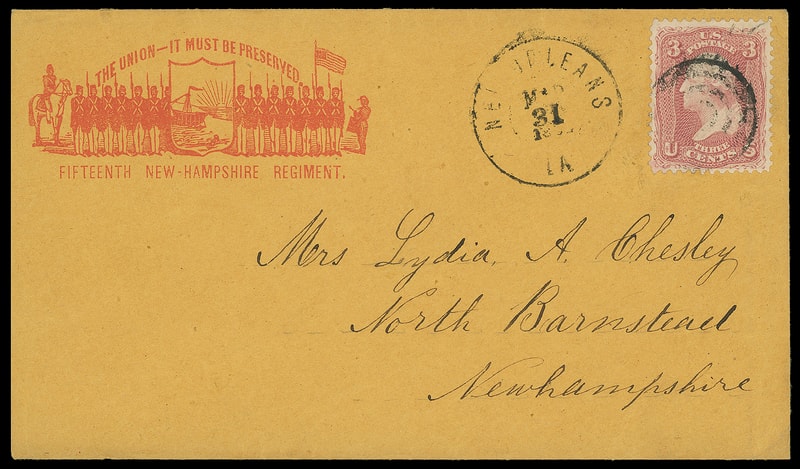 THE UNION—IT MUST BE PRESERVED
FIFTEENTH NEW-HAMPSHIRE REGIMENT.
NEW ORLEANS
MAR
31
LA
3 U.S. 3
POSTAGE
THREE
U CENTS S
Mrs Lydia, A. Chesley
North Barnstead
Newhampshire